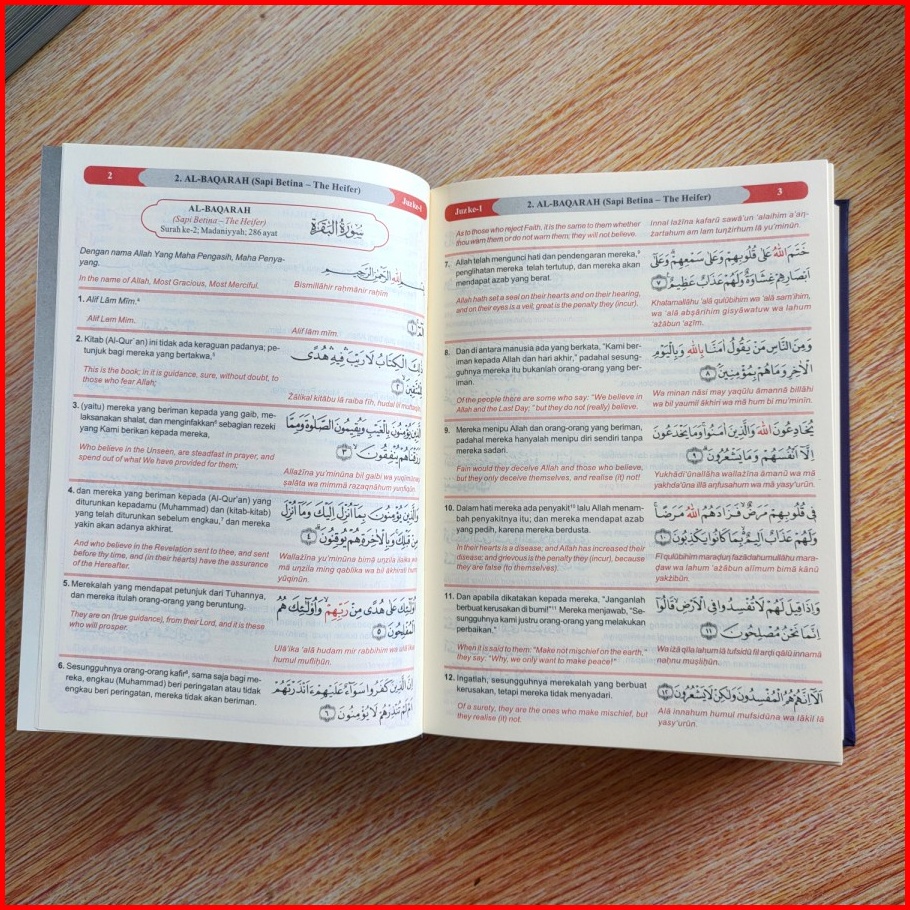 2
2. AL-BAQARAH (Sapi Betina – The Heifer)
Juz ke-1
AL-BAQARAH
(Sapi Betina – The Heifer)
Surah ke-2; Madaniyyah; 286 ayat
سُورَةُ الْبَقَرَةِ
Dengan nama Allah Yang Maha Pengasih, Maha Penya-
yang.
In the name of Allah, Most Gracious, Most Merciful.
اللهِ الرَّحْمٰنِ الرَّحِيْمِ
Bismillāhir raḥmānir raḥīm
1. Alif Lām Mīm.⁴
Alif Lam Mim.
Alif lām mīm.
2. Kitab (Al-Qur'an) ini tidak ada keraguan padanya; pe-
tunjuk bagi mereka yang bertakwa,⁵
This is the book; in it is guidance, sure, without doubt, to
those who fear Allah;
ذٰلِكَ الْكِتَابُ لَا رَيْبَ فِيْهِ هُدًى
Żālikal kitābu lā raiba fīh, hudal lil muttaqīn,
3. (yaitu) mereka yang beriman kepada yang gaib, me-
laksanakan shalat, dan menginfakkan⁶ sebagian rezeki
yang Kami berikan kepada mereka,
Who believe in the Unseen, are steadfast in prayer, and
spend out of what We have provided for them;
الَّذِيْنَ يُؤْمِنُوْنَ بِالْغَيْبِ وَيُقِيْمُوْنَ الصَّلٰوةَ وَمِمَّا
رَزَقْنٰهُمْ يُنْفِقُوْنَ ۝٣
Allażīna yu'minūna bil gaibi wa yuqīmūnaṣ
ṣalāta wa mimmā razaqnāhum yunfiqūn.
4. dan mereka yang beriman kepada (Al-Qur'an) yang
diturunkan kepadamu (Muhammad) dan (kitab-kitab)
yang telah diturunkan sebelum engkau,⁷ dan mereka
yakin akan adanya akhirat.
And who believe in the Revelation sent to thee, and sent
before thy time, and (in their hearts) have the assurance
of the Hereafter.
وَالَّذِيْنَ يُؤْمِنُوْنَ بِمَآ اُنْزِلَ اِلَيْكَ وَمَآ اُنْزِلَ
مِنْ قَبْلِكَ وَبِالْاٰخِرَةِ هُمْ يُوْقِنُوْنَ ۝٤
Wallażīna yu'minūna bimā unzila ilaika wa
mā unzila ming qablika wa bil ākhirati hum
yūqinūn.
5. Merekalah yang mendapat petunjuk dari Tuhannya,
dan mereka itulah orang-orang yang beruntung.
They are on (true guidance), from their Lord, and it is these
who will prosper.
اُولٰٓئِكَ عَلٰى هُدًى مِنْ رَبِّهِمْ وَاُولٰٓئِكَ هُمُ
الْمُفْلِحُوْنَ ۝٥
Ulā'ika 'alā hudam mir rabbihim wa ulā'ika
humul mufliḥūn.
6. Sesungguhnya orang-orang kafir⁸, sama saja bagi me-
reka, engkau (Muhammad) beri peringatan atau tidak
engkau beri peringatan, mereka tidak akan beriman.
اِنَّ الَّذِيْنَ كَفَرُوْا سَوَآءٌ عَلَيْهِمْ ءَاَنْذَرْتَهُمْ
اَمْ لَمْ تُنْذِرْهُمْ لَا يُؤْمِنُوْنَ ۝٦
Juz ke-1
2. AL-BAQARAH (Sapi Betina – The Heifer)
3
As to those who reject Faith, it is the same to them whether
thou warn them or do not warn them; they will not believe.
Innal lażīna kafarū sawā'un 'alaihim a'an-
żartahum am lam tunżirhum lā yu'minūn.
7. Allah telah mengunci hati dan pendengaran mereka,⁹
penglihatan mereka telah tertutup, dan mereka akan
mendapat azab yang berat.
Allah hath set a seal on their hearts and on their hearing,
and on their eyes is a veil; great is the penalty they (incur).
خَتَمَ اللهُ عَلٰى قُلُوْبِهِمْ وَعَلٰى سَمْعِهِمْ وَعَلٰٓى
اَبْصَارِهِمْ غِشَاوَةٌ وَلَهُمْ عَذَابٌ عَظِيْمٌ ۝٧
Khatamallāhu 'alā qulūbihim wa 'alā sam'ihim,
wa 'alā abṣārihim gisyāwatuw wa lahum
'ażābun 'aẓīm.
8. Dan di antara manusia ada yang berkata, "Kami ber-
iman kepada Allah dan hari akhir," padahal sesung-
guhnya mereka itu bukanlah orang-orang yang ber-
iman.
Of the people there are some who say: "We believe in
Allah and the Last Day;" but they do not (really) believe.
وَمِنَ النَّاسِ مَنْ يَقُوْلُ اٰمَنَّا بِاللهِ وَبِالْيَوْمِ
الْاٰخِرِ وَمَا هُمْ بِمُؤْمِنِيْنَ ۝٨
Wa minan nāsi may yaqūlu āmannā billāhi
wa bil yaumil ākhiri wa mā hum bi mu'minīn.
9. Mereka menipu Allah dan orang-orang yang beriman,
padahal mereka hanyalah menipu diri sendiri tanpa
mereka sadari.
Fain would they deceive Allah and those who believe,
but they only deceive themselves, and realise (it) not!
يُخٰدِعُوْنَ اللهَ وَالَّذِيْنَ اٰمَنُوْا وَمَا يَخْدَعُوْنَ
اِلَّآ اَنْفُسَهُمْ وَمَا يَشْعُرُوْنَ ۝٩
Yukhādi'ūnallāha wallażīna āmanū wa mā
yakhda'ūna illā anfusahum wa mā yasy'urūn.
10. Dalam hati mereka ada penyakit¹⁰ lalu Allah menam-
bah penyakitnya itu; dan mereka mendapat azab
yang pedih, karena mereka berdusta.
In their hearts is a disease; and Allah has increased their
disease; and grievous is the penalty they (incur), because
they are false (to themselves).
فِيْ قُلُوْبِهِمْ مَرَضٌ فَزَادَهُمُ اللهُ مَرَضًا
وَلَهُمْ عَذَابٌ اَلِيْمٌ بِمَا كَانُوْا يَكْذِبُوْنَ ۝١٠
Fī qulūbihim maraḍun fazādahumullāhu mara-
ḍaw wa lahum 'ażābun alīmum bimā kānū
yakżibūn.
11. Dan apabila dikatakan kepada mereka, "Janganlah
berbuat kerusakan di bumi!"¹¹ Mereka menjawab, "Se-
sungguhnya kami justru orang-orang yang melakukan
perbaikan."
When it is said to them: "Make not mischief on the earth,"
they say: "Why, we only want to make peace!"
وَاِذَا قِيْلَ لَهُمْ لَا تُفْسِدُوْا فِى الْاَرْضِ قَالُوْٓا
اِنَّمَا نَحْنُ مُصْلِحُوْنَ ۝١١
Wa iżā qīla lahum lā tufsidū fil arḍi qālū innamā
naḥnu muṣliḥūn.
12. Ingatlah, sesungguhnya merekalah yang berbuat
kerusakan, tetapi mereka tidak menyadari.
Of a surety, they are the ones who make mischief, but
they realise (it) not.
اَلَآ اِنَّهُمْ هُمُ الْمُفْسِدُوْنَ وَلٰكِنْ لَا يَشْعُرُوْنَ ۝١٢
Alā innahum humul mufsidūna wa lākil lā
yasy'urūn.